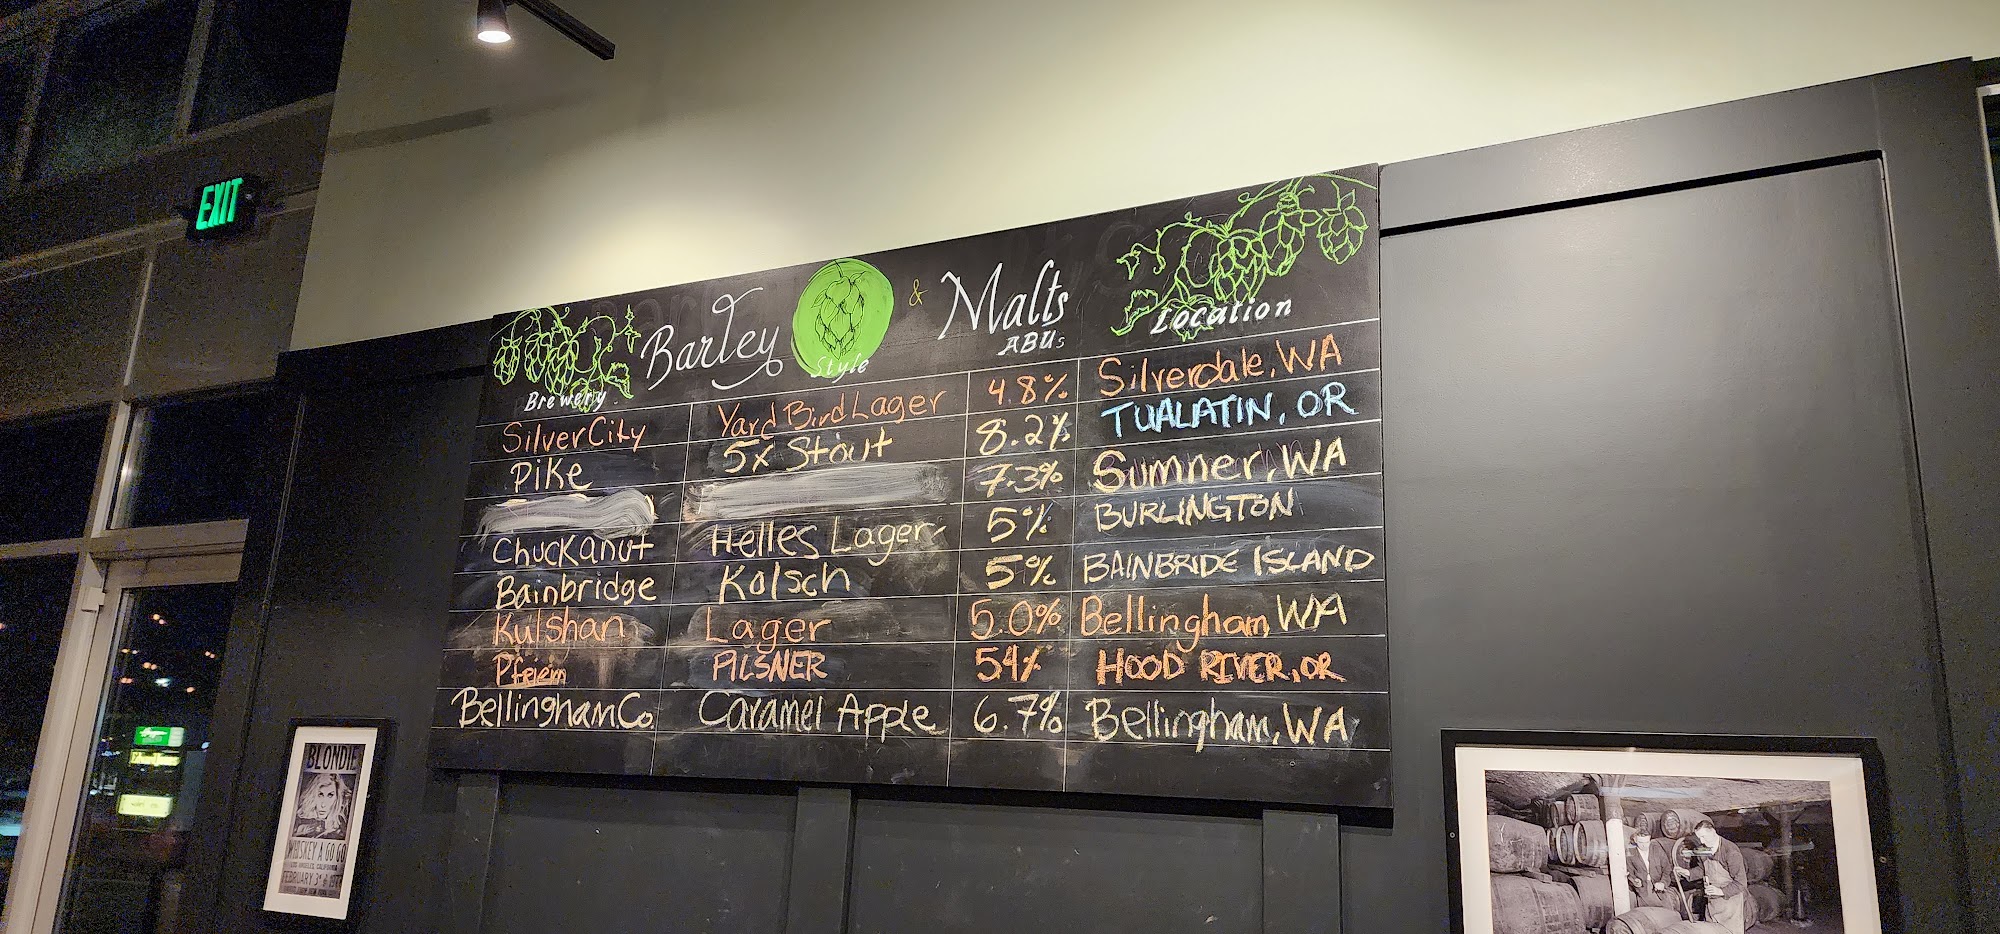 EXIT
Barley & Malts
Brewery Style ABUs Location
SilverCity Yard Bird Lager 4.8% Silverdale, WA
Pike 5x Stout 8.2% TUALATIN, OR
7.3% Sumner, WA
Chuckanut Helles Lager 5% BURLINGTON
Bainbridge Kolsch 5% BAINBRIDE ISLAND
Kulshan Lager 5.0% Bellingham, WA
Pfriem PILSNER 54% HOOD RIVER, OR
Bellingham Co. Caramel Apple 6.7% Bellingham, WA
BLONDIE
WHISKEY A GO GO
LOS ANGELES, CALIFORNIA
FEBRUARY 3rd